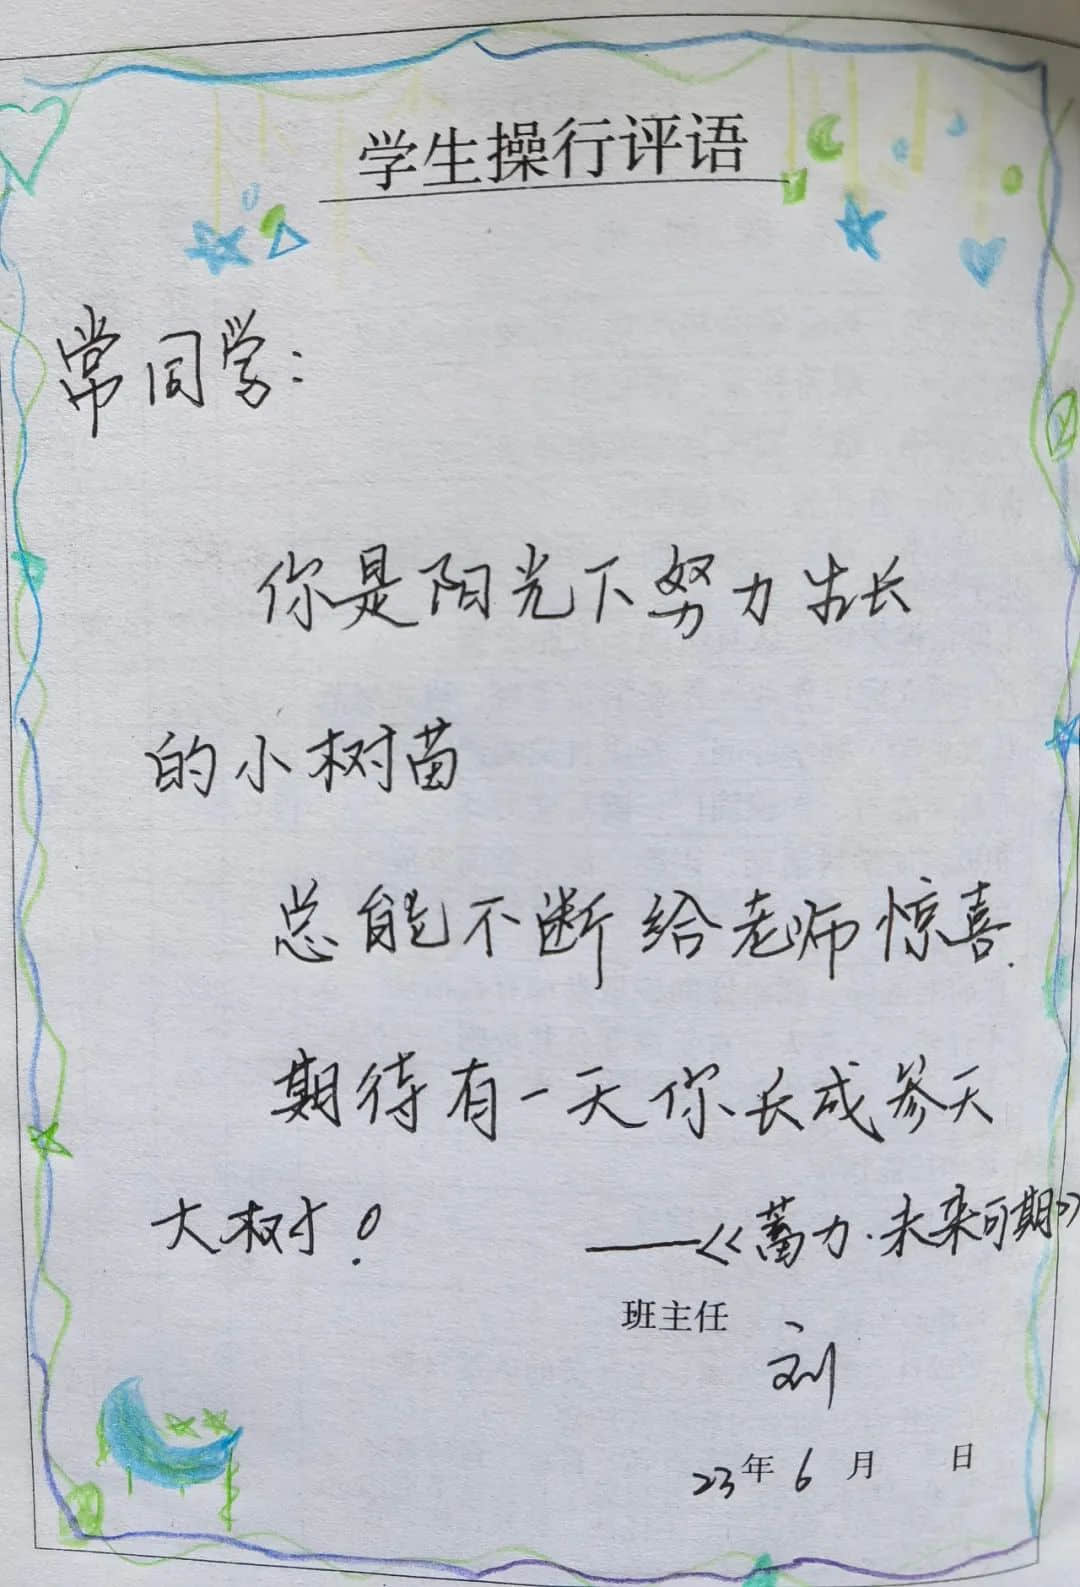 学生操行评语
常同学:
你是阳光下努力生长
的小树苗
总能不断给老师惊喜.
期待有一天你长成参天
大树!
——《蓄力·未来可期》
班主任
刘
23年6月 日